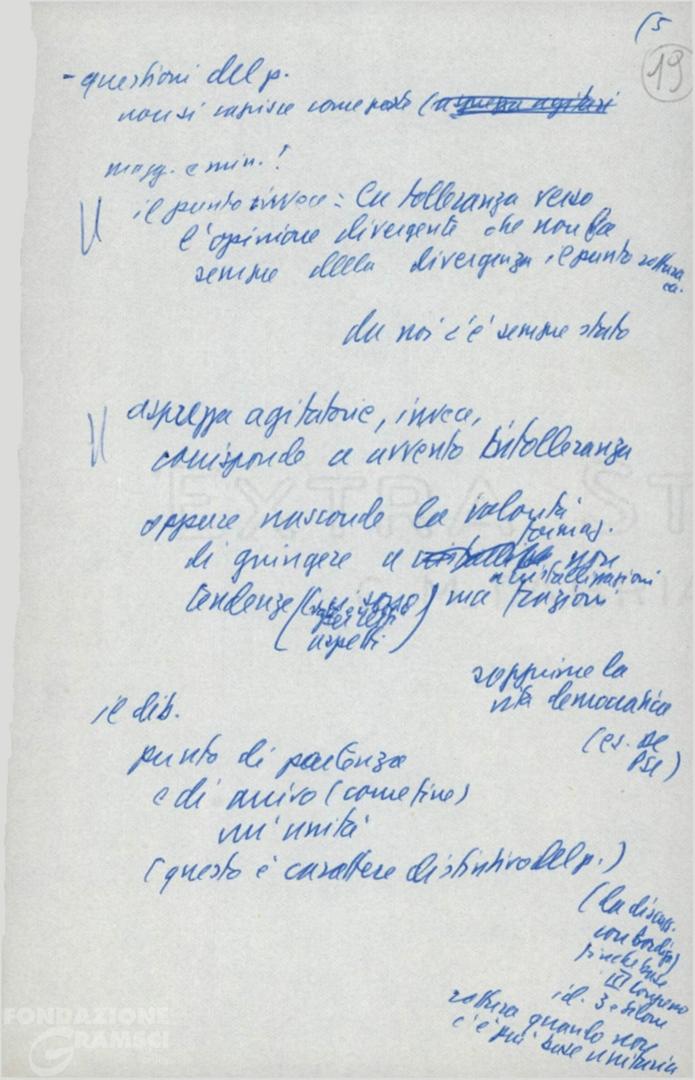 (5
19
- questioni del p.
non si capisce come posto (a asprezza agitatori
magg. e min.!
il punto invece: la tolleranza verso
l'opinione divergente che non fa
semme della divergenza, il punto rottura
ca.
da noi c'è semme stato
asprezza agitatorie, invece,
corrisponde a avvento intolleranza
oppure nasconde la volontà
di giungere a formaz. non
a cristallizzazioni
tendenze (ci sono
per certi
aspetti) ma frazioni
sopprime la
vita democratica
(es. DC
PSI)
il dib.
punto di partenza
e di arrivo (come fine)
un'unità
(questo è carattere distintivo del p.)
(la discuss.
con Bordiga)
finché base
III Congresso
id. 3 e Silone
rottura quando non
c'è più base unitaria
FONDAZIONE
GRAMSCI